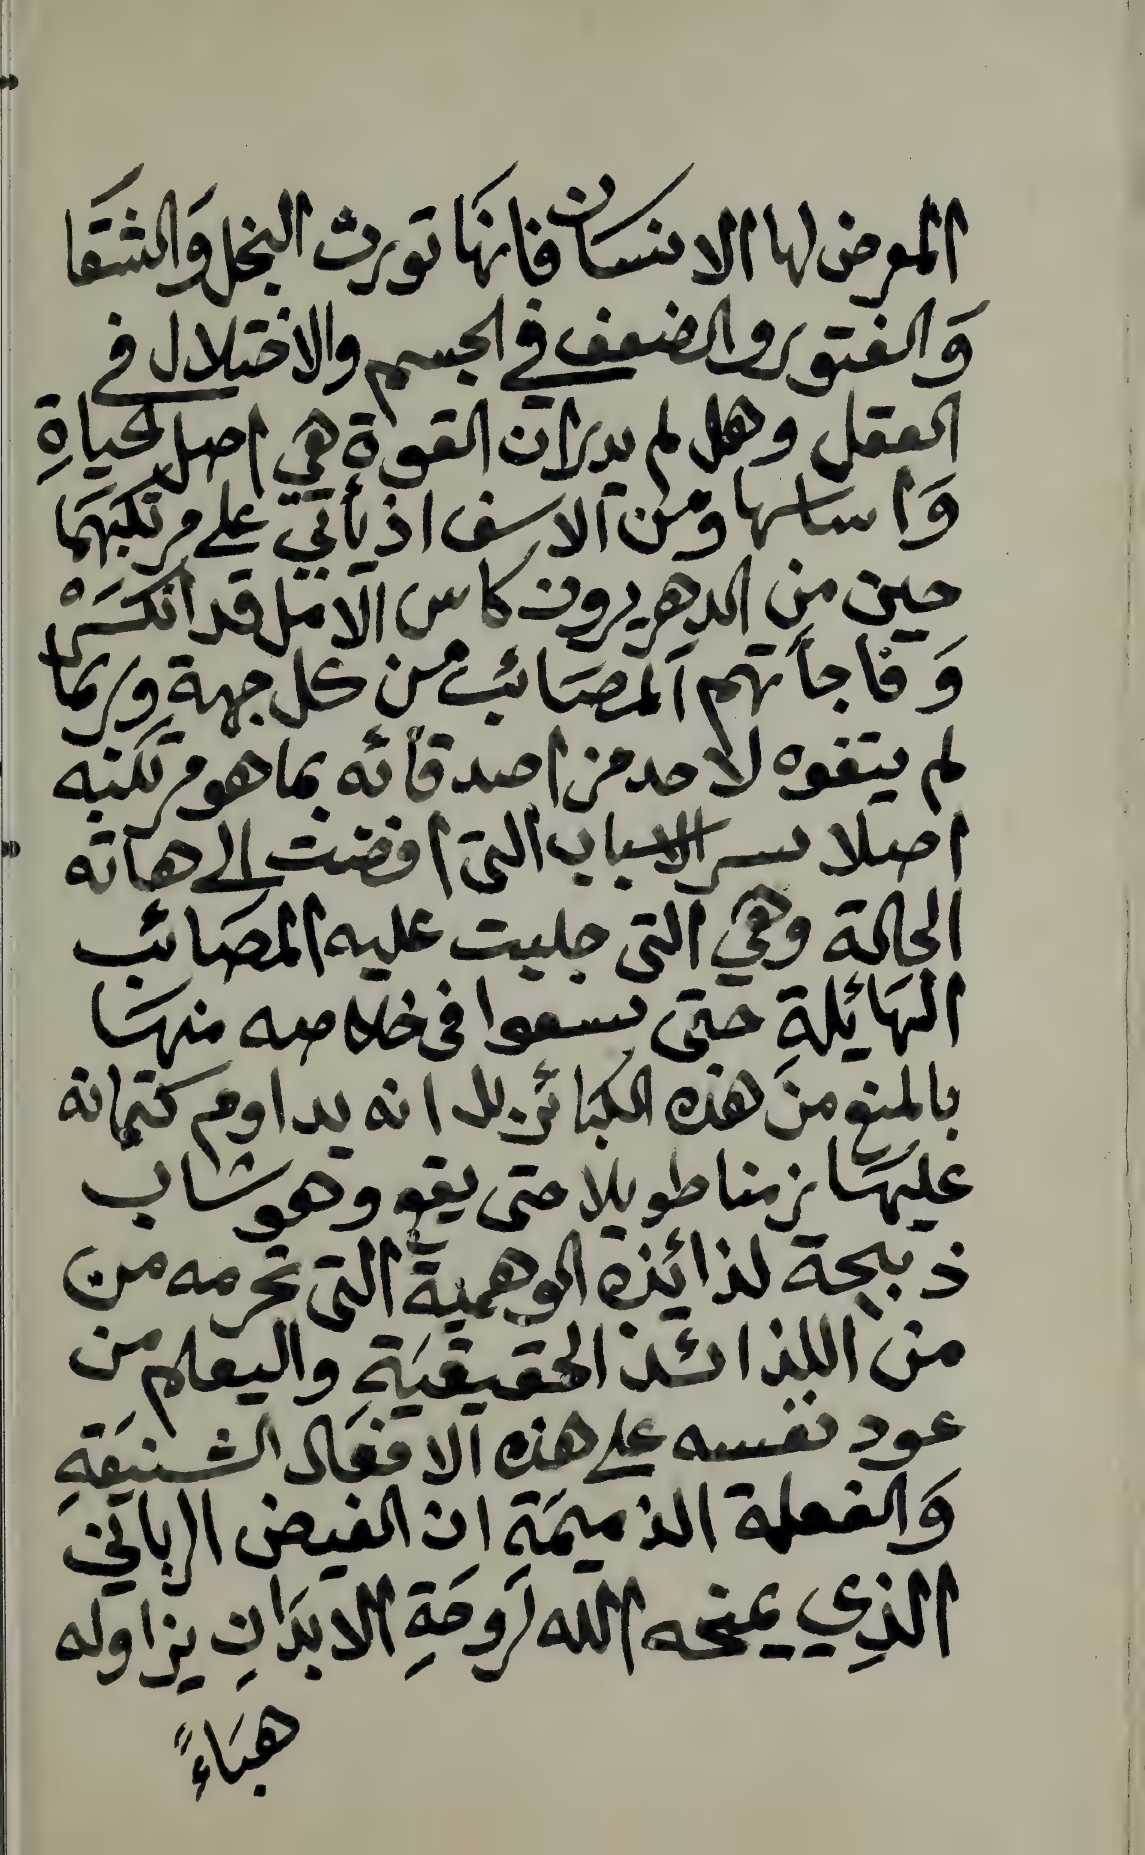 المعرض لها الانسان فانهَا تورث البخل وَالشقَا
وَالفتور والضعف في الجسم والاختلال في
العقل وهل لم يدر ان القوة هي اصل الحياةِ
وَاساسها ومن الاسف اذ يأتي على مرتكبهَا
حين من الدهر يرون كاس الامل قد انكسَر
وَفاجأتهم المصَائب من كل جهة وربمَا
لم يتفوه لاحد من اصدقائه بما هو مرتكبه
اصلا سر الاسباب التى افضت الى هاته
الحالة وهي التى جلبت عليه المصَائب
الهَائلةِ حتى سعوا فى خلاصه منهَا
بالمنع من هذه الكبائر بل انه يداوم كتمانه
عليهَا زمنا طويلا حتى يقع وهو شاب
ذبيحة لذائذه الوهمية التى تحرمه من
من اللذائذ الحقيقيَةِ واليعلم من
عود نفسه على هذه الافعَال الشنيعَةِ
وَالفعلة الذميمَةِ ان الفيض الربانيَ
الذِي يمنحه الله لرَوحَةِ الابدَانِ يزاوله
هبَاءً